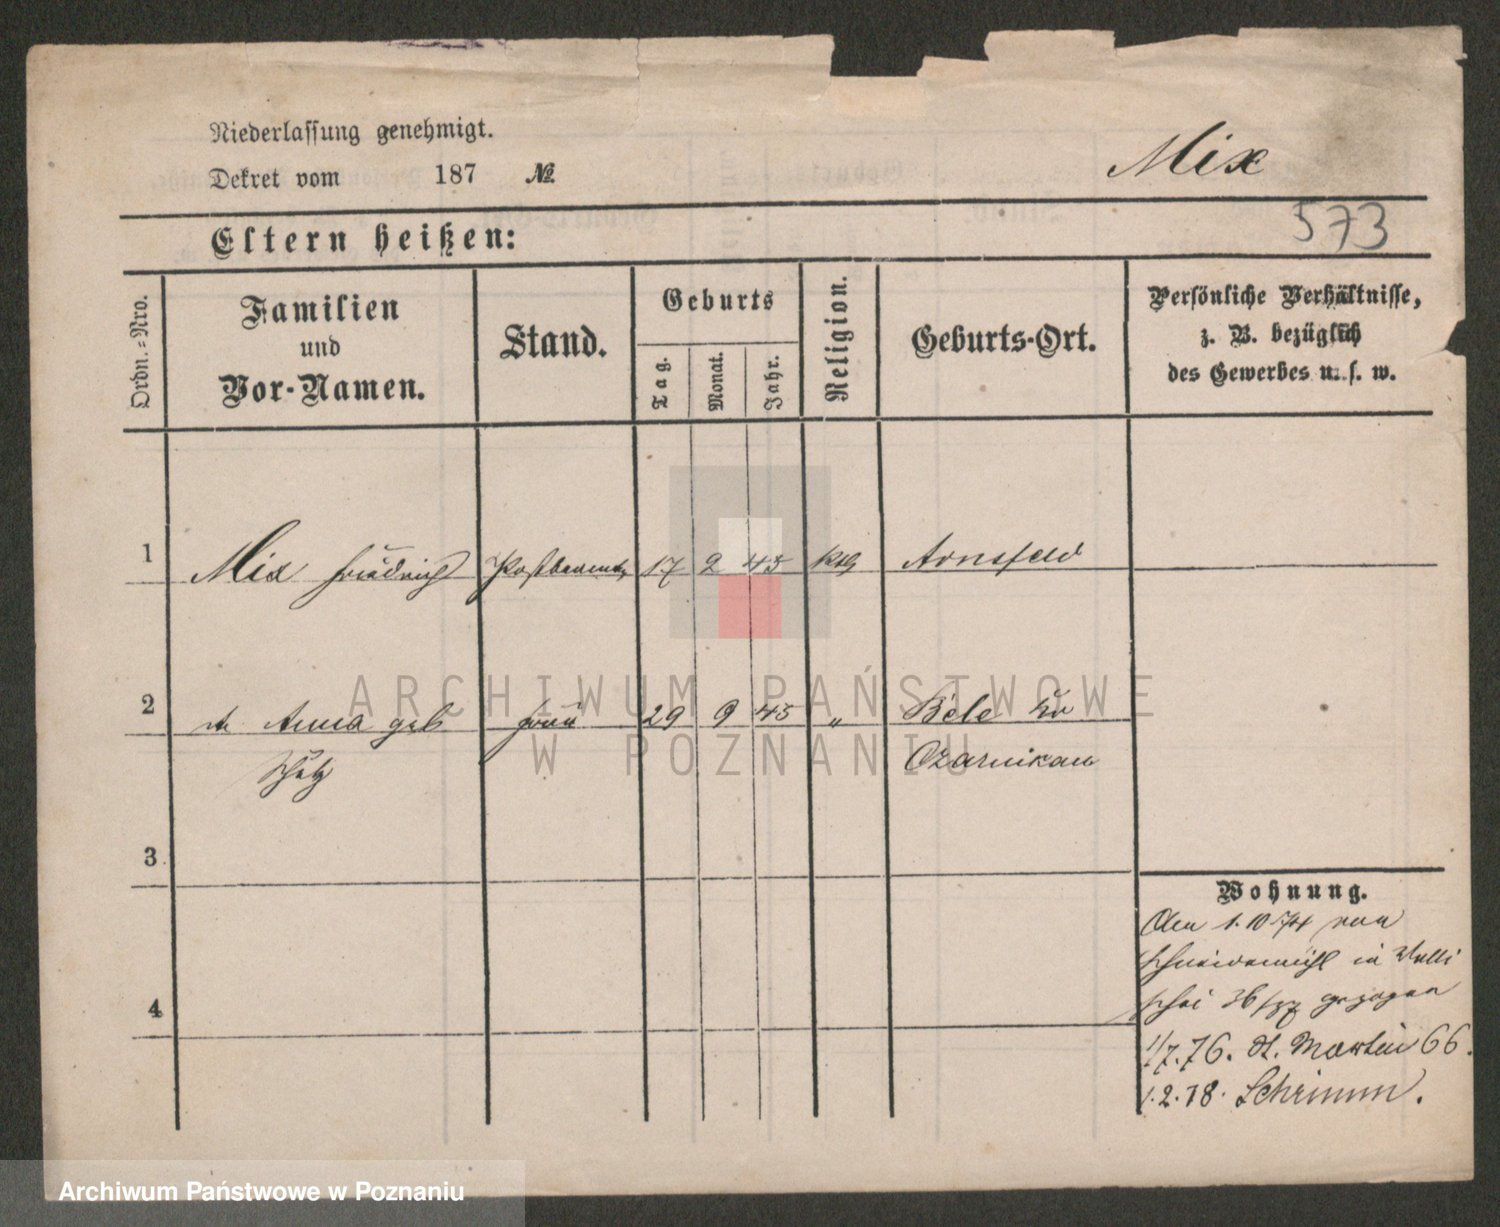 Niederlassung genehmigt.
Dekret vom 187 №
Mix
573
Eltern heißen:
Ordn.=Nro.
Familien
und
Vor-Namen.
Stand.
Geburts
Tag.
Monat.
Jahr.
Religion.
Geburts-Ort.
Persönliche Verhältnisse,
z. B. bezüglich
des Gewerbes u. s. w.
1 Mix Friedrich 17 2 45 kth Arnsfeld
2 Anna geb Frau 29 9 45 " Bele Kr
Czarnikau
3
4
Wohnung.
Den 1.10.74 von
Schneidemühl in Walli
schei gezogen
1/7.76. St. Martin 66.
1.2.78. Schrimm.
ARCHIWUM PAŃSTWOWE
W POZNANIU
Archiwum Państwowe w Poznaniu